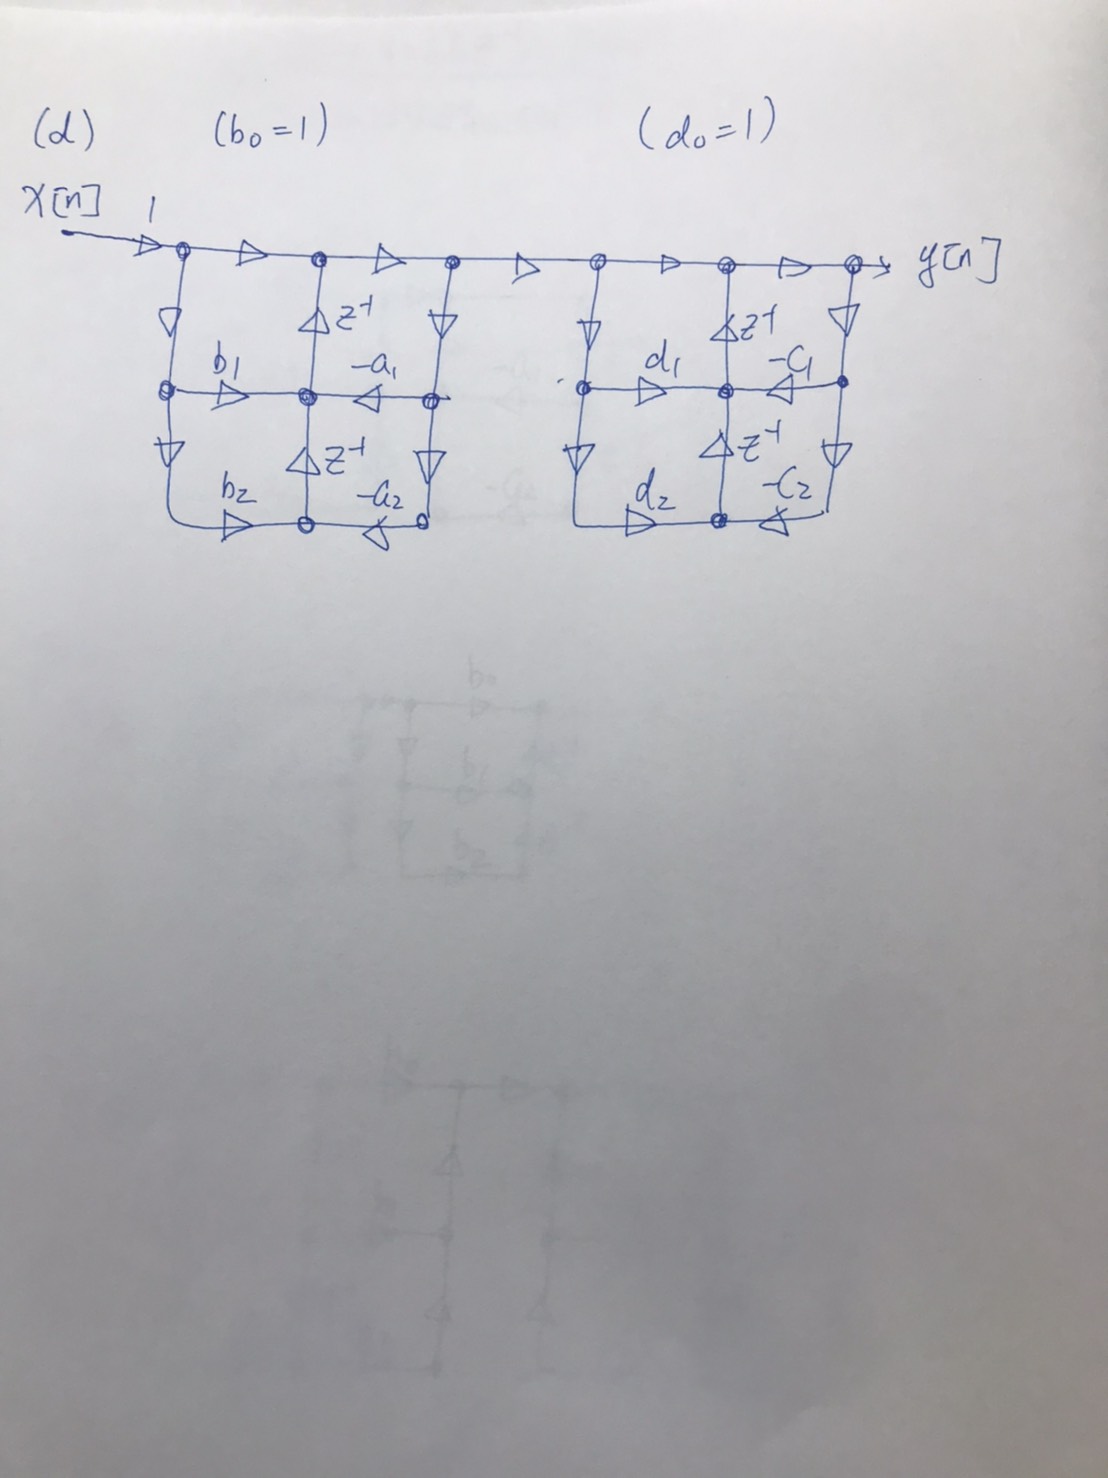 (d) (b₀=1) (d₀=1)
x[n] 1 y[n]
z⁻¹ z⁻¹
b₁ -a₁ d₁ -c₁
z⁻¹ z⁻¹
b₂ -a₂ d₂ -c₂